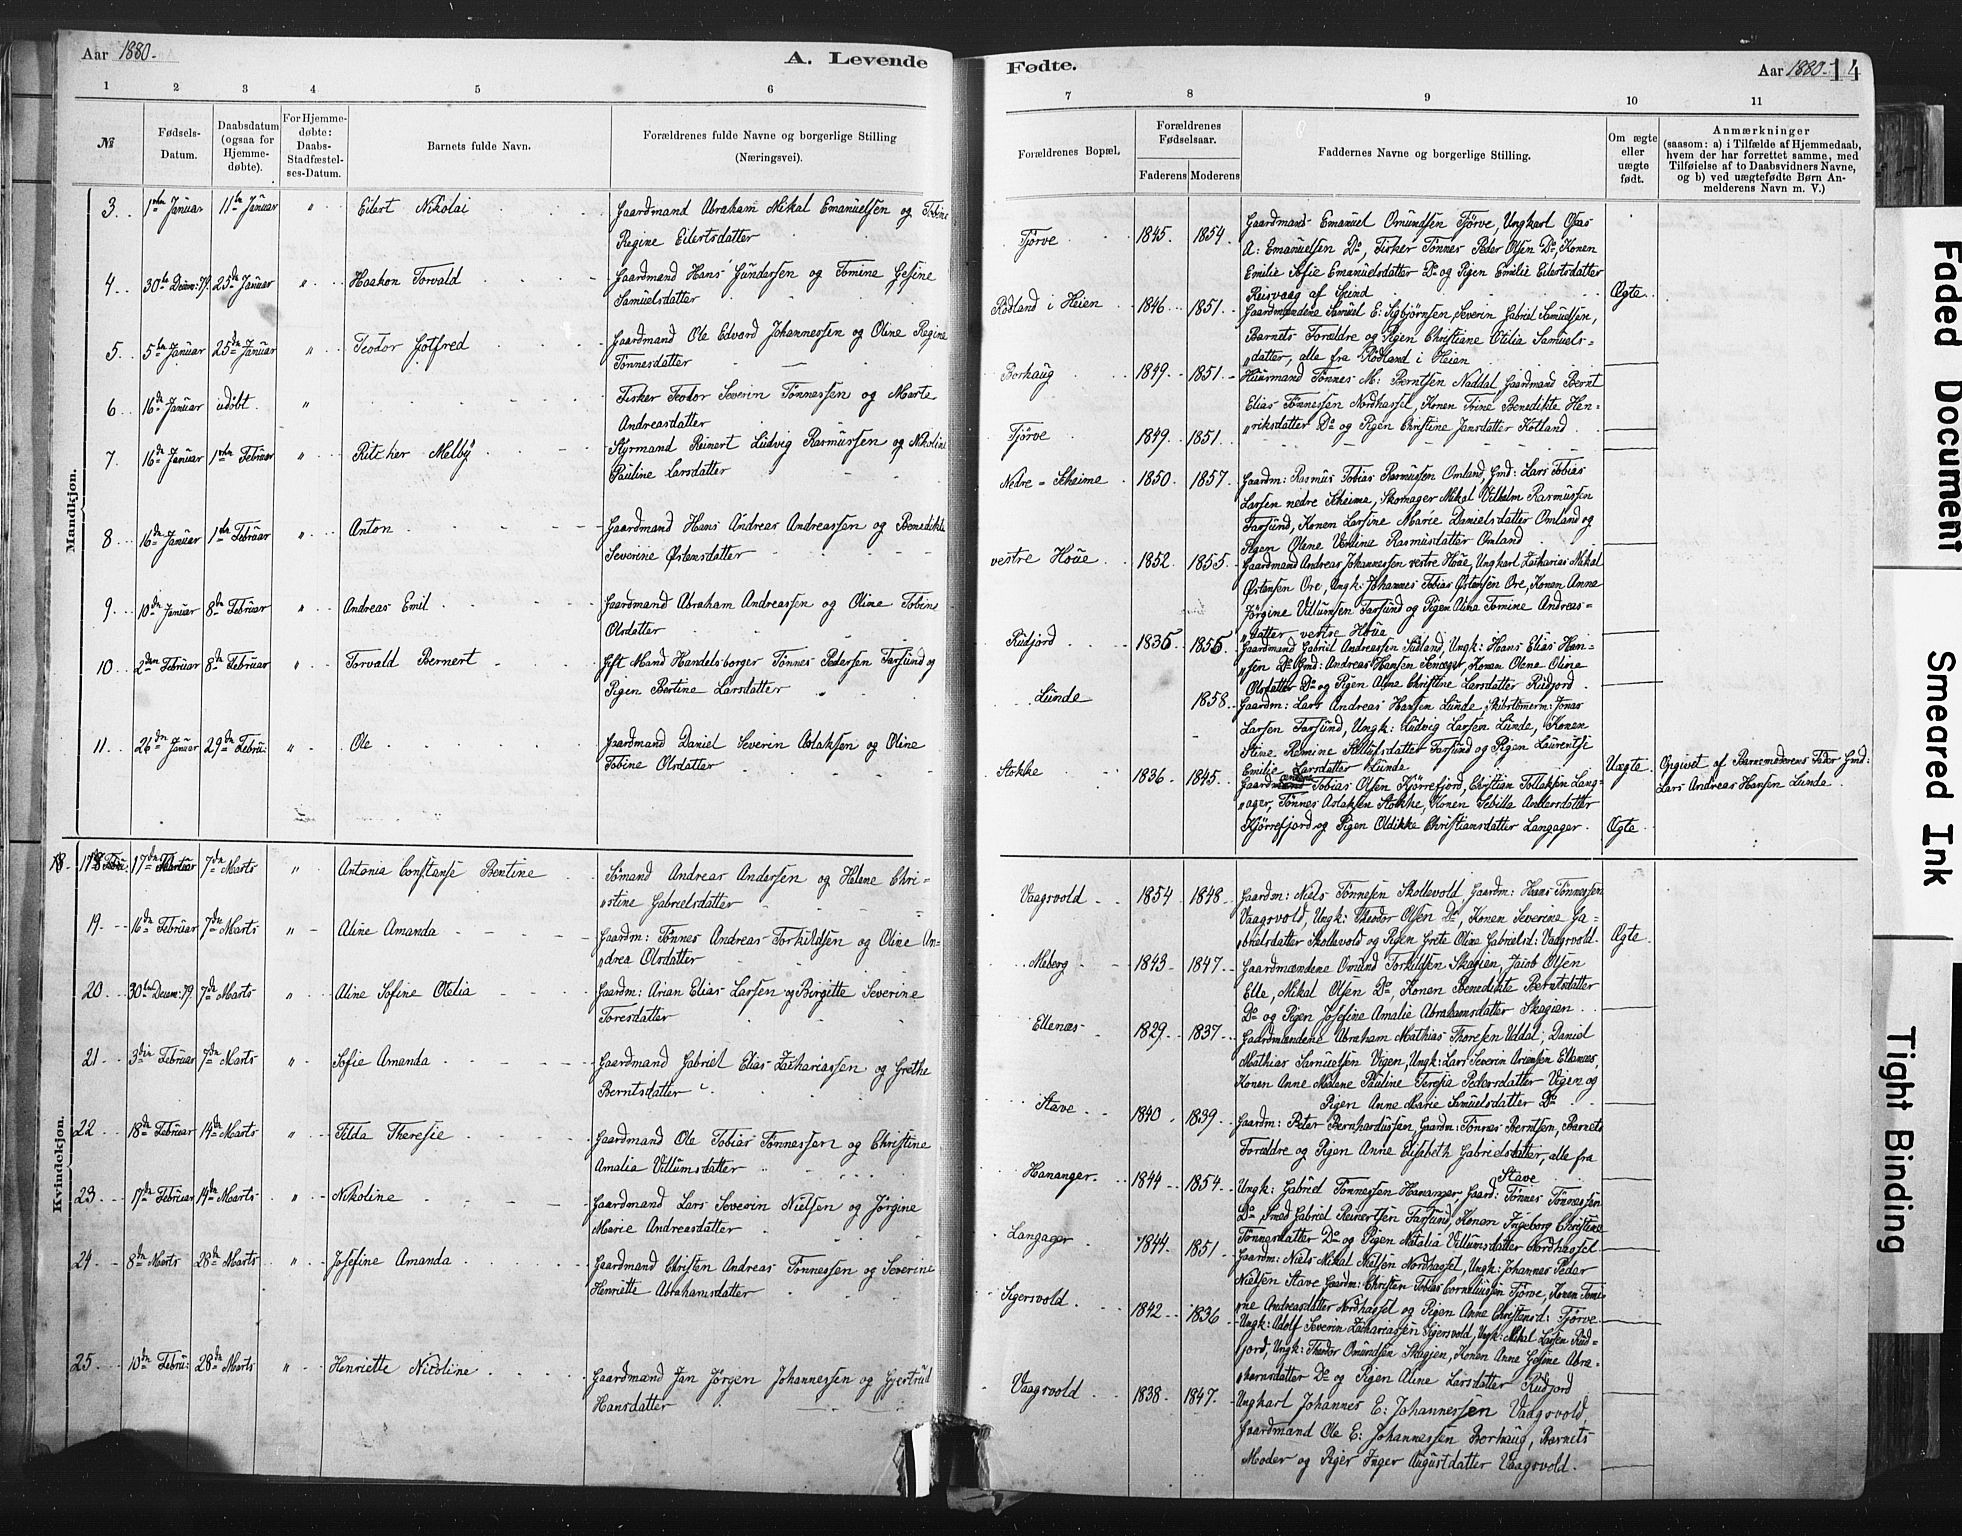 Aar 1880.
A. Levende
Fødte.
Aar 1880. 14
1 2 3 4 5 6 7 8 9 10 11
№
Fødsels-Datum.
Daabsdatum (ogsaa for Hjemmedøbte).
For Hjemmedøbte: Daabs-Stadfæstelses-Datum.
Barnets fulde Navn.
Forældrenes fulde Navne og borgerlige Stilling (Næringsvei).
Forældrenes Bopæl.
Forældrenes Fødselsaar.
Faderens Moderens
Faddernes Navne og borgerlige Stilling.
Om ægte eller uægte født.
Anmærkninger
(saasom: a) i Tilfælde af Hjemmedaab,
hvem der har forrettet samme, med
Tilføielse af to Daabsvidners Navne,
og b) ved uægtefødte Børn Anmelderens Navn m. V.)
Mandkjøn.
3. 1ste Januar 11te Januar " Eilert Nikolai Gaardmand Abraham Mikal Emanuelsen og Tobine
Regine Eilertsdatter
4. 30te Decem: 79. 25de Januar " Haakon Torvald Gaardmand Hans Gundersen og Tomine Gesine
Samuelsdatter
5. 5te Januar 25de Januar " Teodor Gotfred Gaardmand Ole Edvard Johannessen og Oline Regine
Tönnesdatter
6 16de Januar udöbt. " Fisker Teodor Severin Tönnessen og Marte
Andreasdatter
7. 16de Januar 1ste Februar " Ritcher Melby Styrmand Reinert Ludvig Rasmussen og Nikoline
Pauline Larsdatter
8 16de Januar 1ste Februar " Anton Gaardmand Hans Andreas Andreassen og Benedikte
Severine Østensdatter
9. 10de Januar 8de Februar " Andreas Emil Gaardmand Abraham Andreassen og Oline Tobine
Olsdatter
10 2den Februar 8de Februar " Torvald Bernert Gift Mand Handelsborger Tönnes Pedersen Farsund og
Pigen Bertine Larsdatter
11. 26de Januar 29de Febru: " Ole Gaardmand Daniel Severin Aslaksen og Oline
Tobine Olsdatter
Kvindekjøn.
18. 17de Februar 7de Marts " Antonia Constanse Bentine Sömand Andreas Andersen og Helene Chri=
stine Gabrielsdatter
19. 16de Februar 7de Marts " Aline Amanda Gaardm: Tönnes Andreas Torkildsen og Oline An=
drea Olsdatter
20 30te Decem: 79. 7de Marts " Aline Sofine Otelia Gaardm: Arian Elias Larsen og Birgitte Severine
Toresdatter
21 3die Februar 7de Marts " Sofie Amanda Gaardmand Gabriel Elias Zachariassen og Grethe
Berntsdatter
22 18de Februar 14de Marts " Tilda Theresie Gaardmand Ole Tobias Tönnessen og Christine
Amalia Villumsdatter
23 17de Februar 14de Marts " Nikoline Gaardmand Lars Severin Nielsen og Jörgine
Marie Andreasdatter
24 8de Marts 28de Marts " Josefine Amanda Gaardmand Christen Andreas Tönnessen og Severine
Henriette Abrahamsdatter
25 10de Febru: 28de Marts " Henriette Nicoline Gaardmand Jan Jörgen Johannessen og Gjertrud
Hansdatter
Tjörve 1845. 1854. Gaardmand Emanuel Omundsen Tjörve, Ungkarl Osas
A: Emanuelsen Do, Fisker Tönnes Peder Olsen Do, Konen
Emilie Sofie Emanuelsdatter Do og Pigen Emilie Eilertsdatter
Reisvaag af Spind Ægte
Rödland i Heien 1846 1851. Gaardmændene Samuel E: Sigbjörnsen, Severin Gabriel Samuelsen,
Barnets Forældre og Pigen Christiane Otilia Samuels=
datter, alle fra Rödland i Heien
Borhaug 1849. 1851. Huusmand Tönnes M: Berntsen Naddal Gaardmand Bernt
Elias Tönnessen Nordhassel, Konen Trine Benedikte Hen=
riksdatter Do og Pigen Christine Jansdatter Kotland
Tjörve 1849. 1851.
Nedre=Skeime 1850 1857. Gaardm: Rasmus Tobias Rasmussen Omland, Gmd: Lars Tobias
Larsen nedre Skeime, Skomager Mikal Vilhelm Rasmussen
Farsund, Konen Larsine Marie Danielsdatter Omland og
Pigen Olene Verdine Rasmusdatter Omland
vestre Houe 1852. 1855. Gaardmand Andreas Johannessen vestre Houe, Ungkarl Zacharias Mikal
Østensen Ore, Ungk: Johannes Tobias Østensen Ore, Konen Anna
Jörgine Villumsen Farsund og Pigen Alina Tomine Andreas=
datter vestre Houe
Rudjord 1836 1856. Gaardmand Gabriel Andreassen Sudland, Ungk: Hans Elias Han=
sen Do Gmd: Andreas Hansen, Konen Olene Oline
Olsdatter Do og Pigen Alene Christine Larsdatter Rudjord
Lunde 1858. Gaardm: Lars Andreas Hansen Lunde, Skibstömerm: Jonas
Larsen Farsund, Ungk: Ludvig Larsen Lunde, Konen
Stine Romine Farsund og Pigen Laurentse
Emilie Larsdatter Lunde Uægte Opgivet af Barnemoderens Fader Gmd:
Lars Andreas Hansen Lunde
Stokke 1836 1845. Gaardmændene Tobias Olsen Kjörrefjord, Christian Tollaksen Lang=
ager, Tönnes Aslaksen Stokke, Konen Sebilla Andersdatter
Kjörrefjord og Pigen Oldikke Christiansdatter Langager. Ægte
Vaagsvold 1854 1848. Gaardm: Niels Tönnesen Skollevold, Gaardm: Hans Tönnessen
Vaagsvold, Ungk: Theodor Olsen Do, Konen Severine Ga=
brielsdatter Skollevold og Pigen Grete Oline Gabrielsd: Vaagsvold. Ægte
Meberg 1843 1847. Gaardmændene Omund Torkildsen Skagien, Jacob Olsen
Elle, Mikal Olsen Do, Konen Benedikte Berntsdatter
Do og Pigen Josefine Amalie Abrahamsdatter Skagien
Ellenæs 1829. 1837. Gaardmændene Abraham Mathias Thoresen Uddal, Daniel
Mathias Samuelsen Vigen, Ungk: Lars Severin Ariansen Ellenæs,
Konen Anne Malene Pauline Teresia Pedersdatter Vigen og
Pigen Anne Marie Samuelsdatter Do
Stave 1840 1839. Gaardm: Peter Bernhardussen, Gaardm: Tönnes Berntsen, Barnets
Forældre og Pigen Anne Elisabeth Gabrielsdatter, alle fra
Stave
Hananger 1844 1854. Ungk: Gabriel Tönnessen Hananger Gaard: Tönnes Tönnessen
Do, Smed Gabriel Reinertsen Farsund, Konen Ingeborg Christine
Tönnesdatter Do og Pigen Natalia Villumsdatter Nordhassel
Langager 1844. 1851. Gaardm: Niels Mikal Nielsen Nordhassel, Ungk: Johannes Peder
Nielsen Stave Gaardm: Christen Tobias Corneliussen Tjörve, Konen Tomi=
ne Andreasdatter Nordhassel og Pigen Anne Christensd: Tjörve
Sigersvold 1842 1836 Ungk: Adolf Severin Zachariassen Sigersvold, Ungk: Mikal Larsen Rud=
jord, Ungk: Theodor Omundsen Skagjen, Konen Anne Gesine Abra=
hamsdatter Do og Pigen Aline Larsdatter Rudjord
Vaagsvold 1838 1847. Ungkarl Johannes E: Johannessen Vaagsvold,
Gaardmand Ole E: Johannessen Borhaug, Barnets
Moder og Piger Inger Augustdatter Vaagsvold.
Faded Document
Smeared Ink
Tight Binding